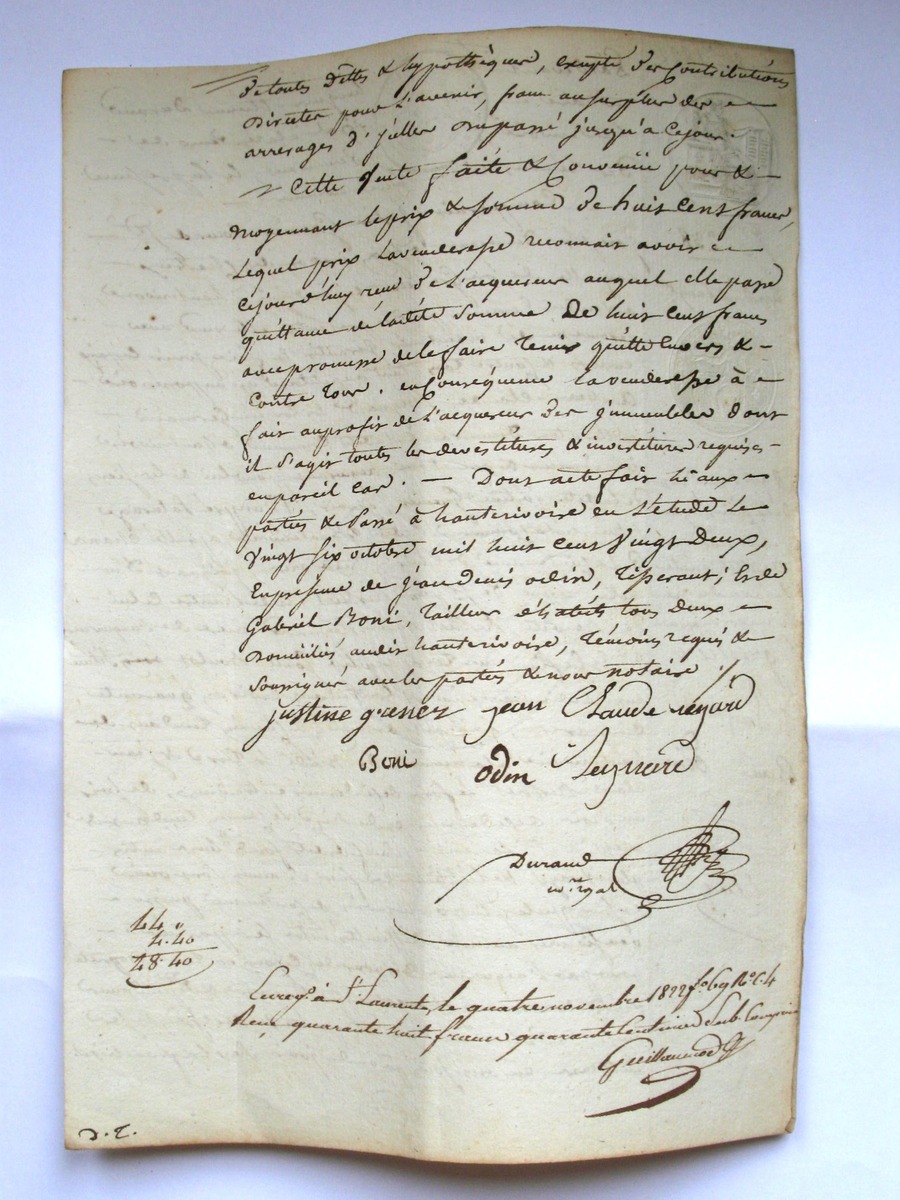 de toutes dettes & hypothèques, exempte des Contributions
directes pour l'avenir, franc au surplus des
arrerages d'jcelles du passé jusqu'à Cejour.
Cette Vente faite & Convenüe pour &
moyennant le prix & somme de huit Cent francs,
lequel prix la venderesse reconnait avoir
cejourd'huy reçu de l'acquereur auquel elle passe
quittance de ladite somme de huit cent francs
avec promesse de le faire tenir quitte Envers &
Contre tous. en Conséquence la venderesse à
fait au profit de l'acquereur des jmmeubles dont
il s'agit toutes les devestitures & investitures requises
en pareil cas. — Dont acte fait lu aux
parties & Passé à hauterivoire en l'etude Le
Vingt six octobre mil huit cent Vingt Deux,
En présence de jean denis odin, Tisserant; & de
Gabriel Boni, Tailleur d'habits tous Deux
domiciliés audit hauterivoire, Témoins requis &
soussignés avec les parties & nous notaire ./.
justine jean Claude
Boni odin
Durand
nre royal
44 "
4.40
48.40
Enregé à St Laurent, le quatre novembre 1822 fo 69 Ro C. 4
Reçu quarante huit francs quarante Centimes Sub. Comprise
D. T.